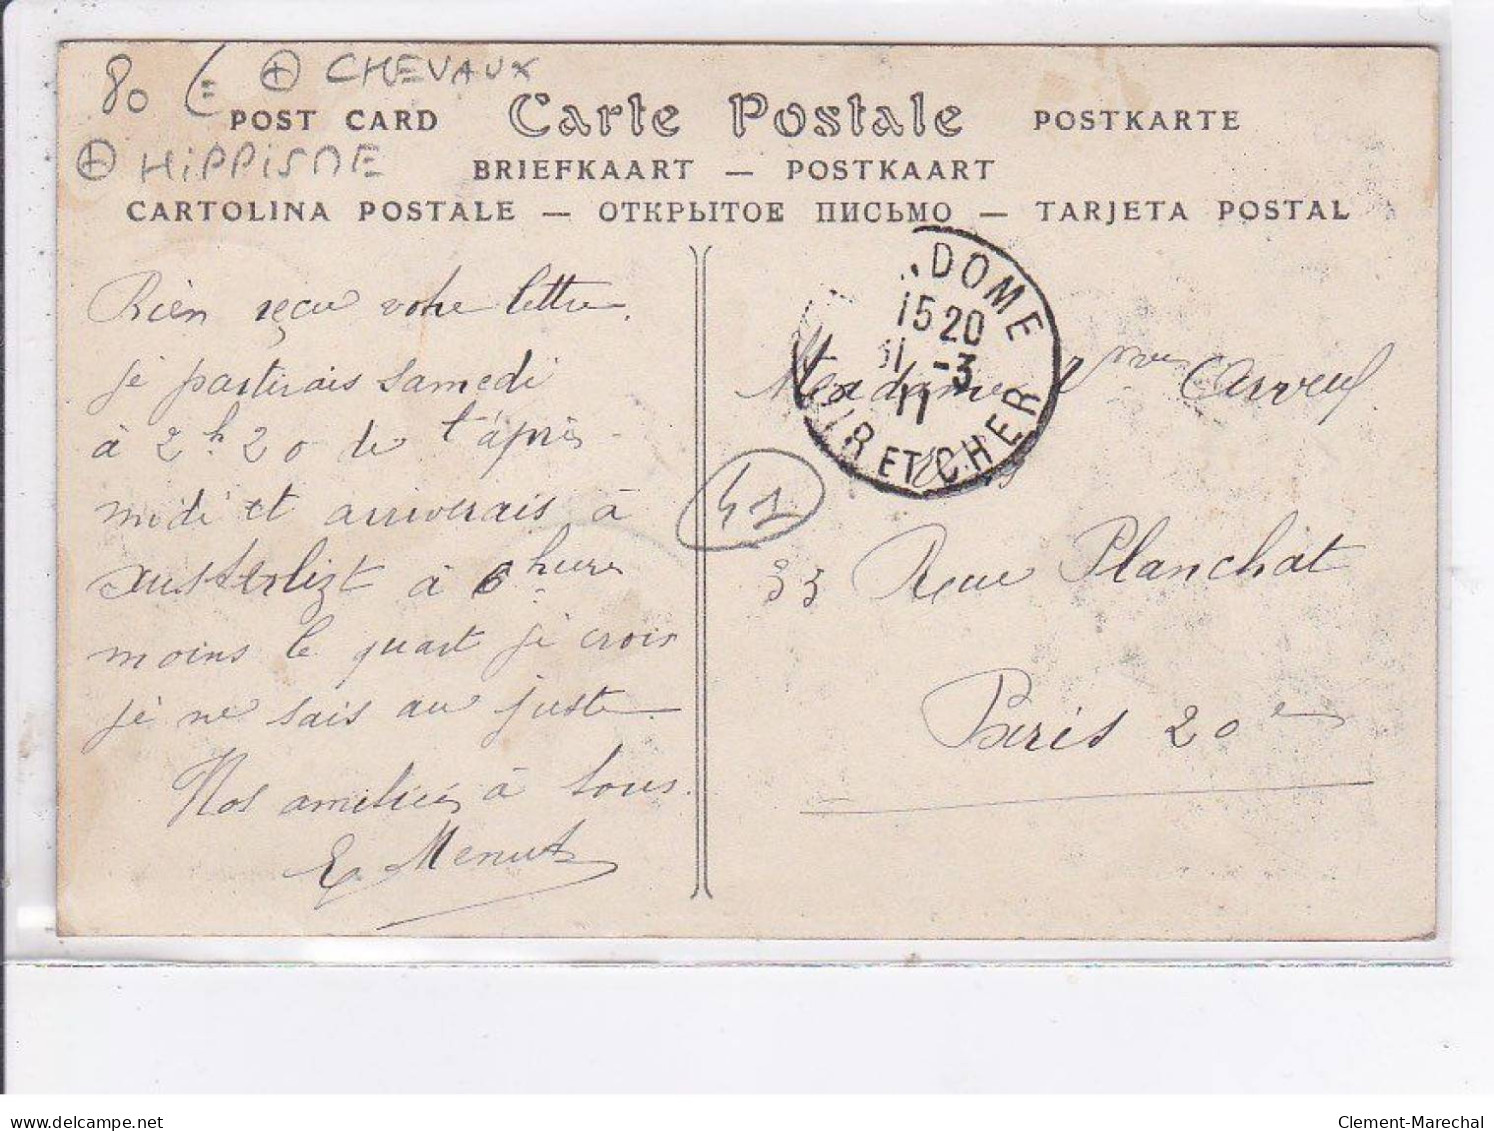 80 € + CHEVAUX
POST CARD Carte Postale POSTKARTE
+ HIPPISME
BRIEFKAART — POSTKAART
CARTOLINA POSTALE — ОТКРЫТОЕ ПИСЬМО — TARJETA POSTAL
Bien reçu votre lettre.
je partirais samedi
à 2h20 de l'après
midi et arriverais à
Austerlizt à 6 heures
moins le quart je crois
je ne sais au juste
Nos amitiés à tous.
E. Menut
41
DOME
15 20
-3
11
ET CHER
Madame Vve
33 Rue Planchat
Paris 20e
delcampe.net
Clement-Marechal